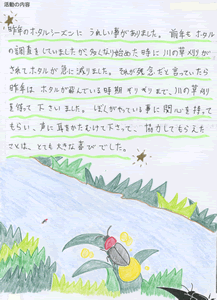 活動の内容
昨年のホタルシーズンに うれしい事がありました。 前年も ホタル
の調査をしていましたが、多くなり始めた時に 川の草刈りが
されてホタルが急に減りました。 それが残念だと言っていたら
昨年は ホタルが飛んでいる時期 ギリギリまで、川の草刈り
を待って 下さいました。 ぼくがやっている事に関心を持って
もらい、声に耳をかたむけて下さって、 協力してもらえた
ことは、とても大きな喜びでした。